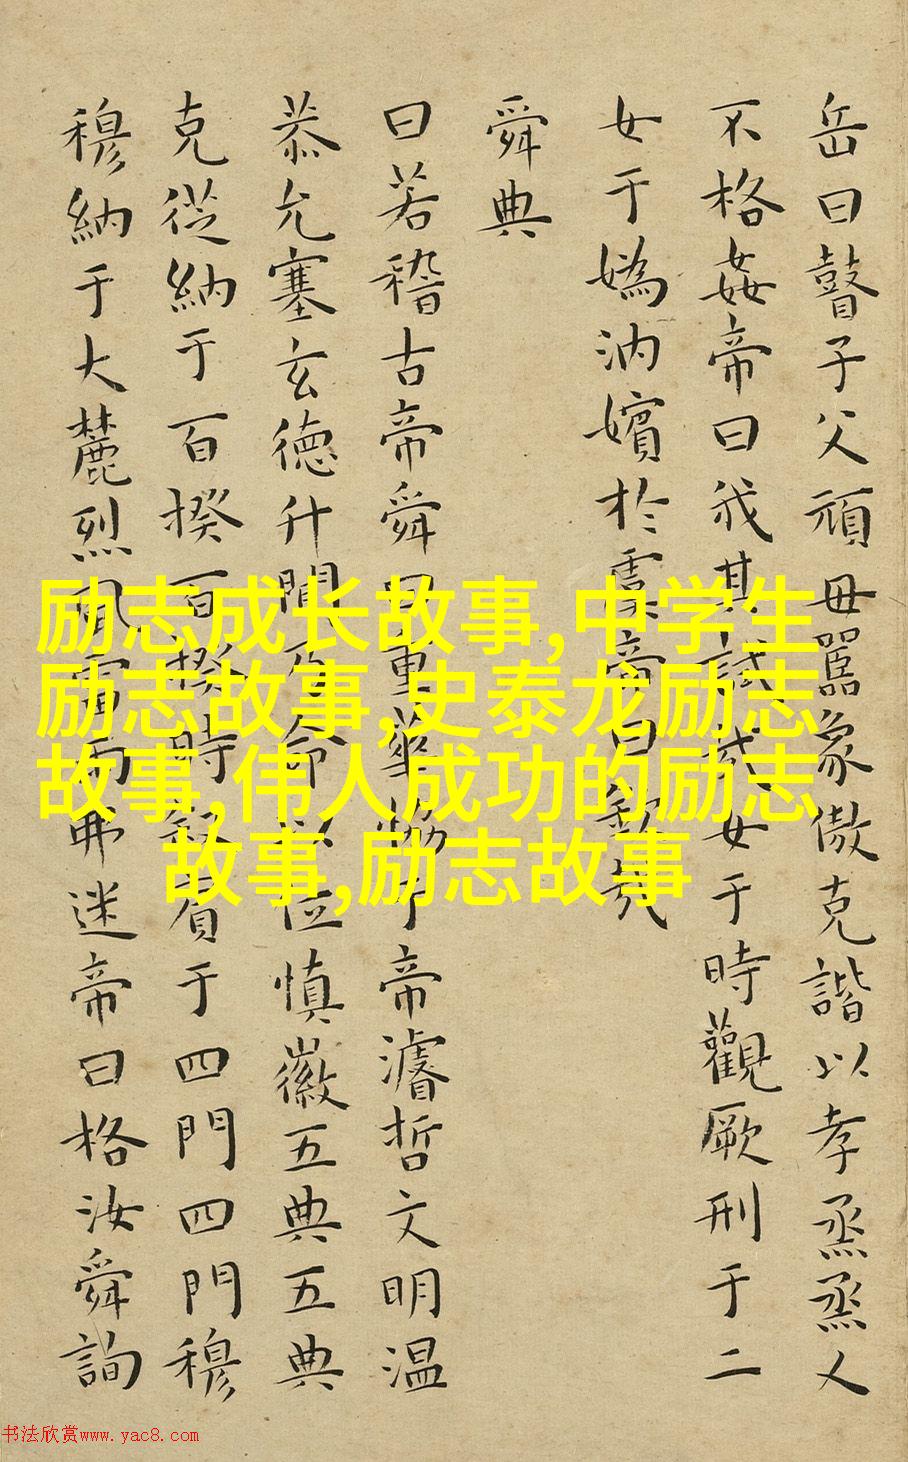 岳曰瞽子父頑毋嚚象傲克諧以孝烝烝乂
不格姦帝曰我其試哉女于時觀厥刑于二
女于媯汭嬪於虞帝曰欽哉
舜典
曰若稽古帝舜曰重華協于帝濬哲文明温
恭允塞玄德升聞乃命以位慎徽五典五典
克從納于百揆百揆時敘賓于四門四門穆
穆納于大麓烈風雷雨弗迷帝曰格汝舜詢
励志成长故事,中学生
励志故事,史泰龙励志
故事,伟人成功的励志
故事,励志故事
书法欣赏www.yac8.com